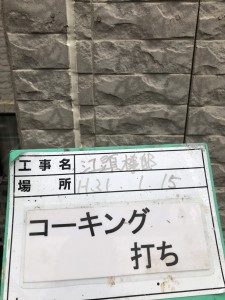 工事名 江頭様邸
場所 H31.1.15
コーキング
打ち